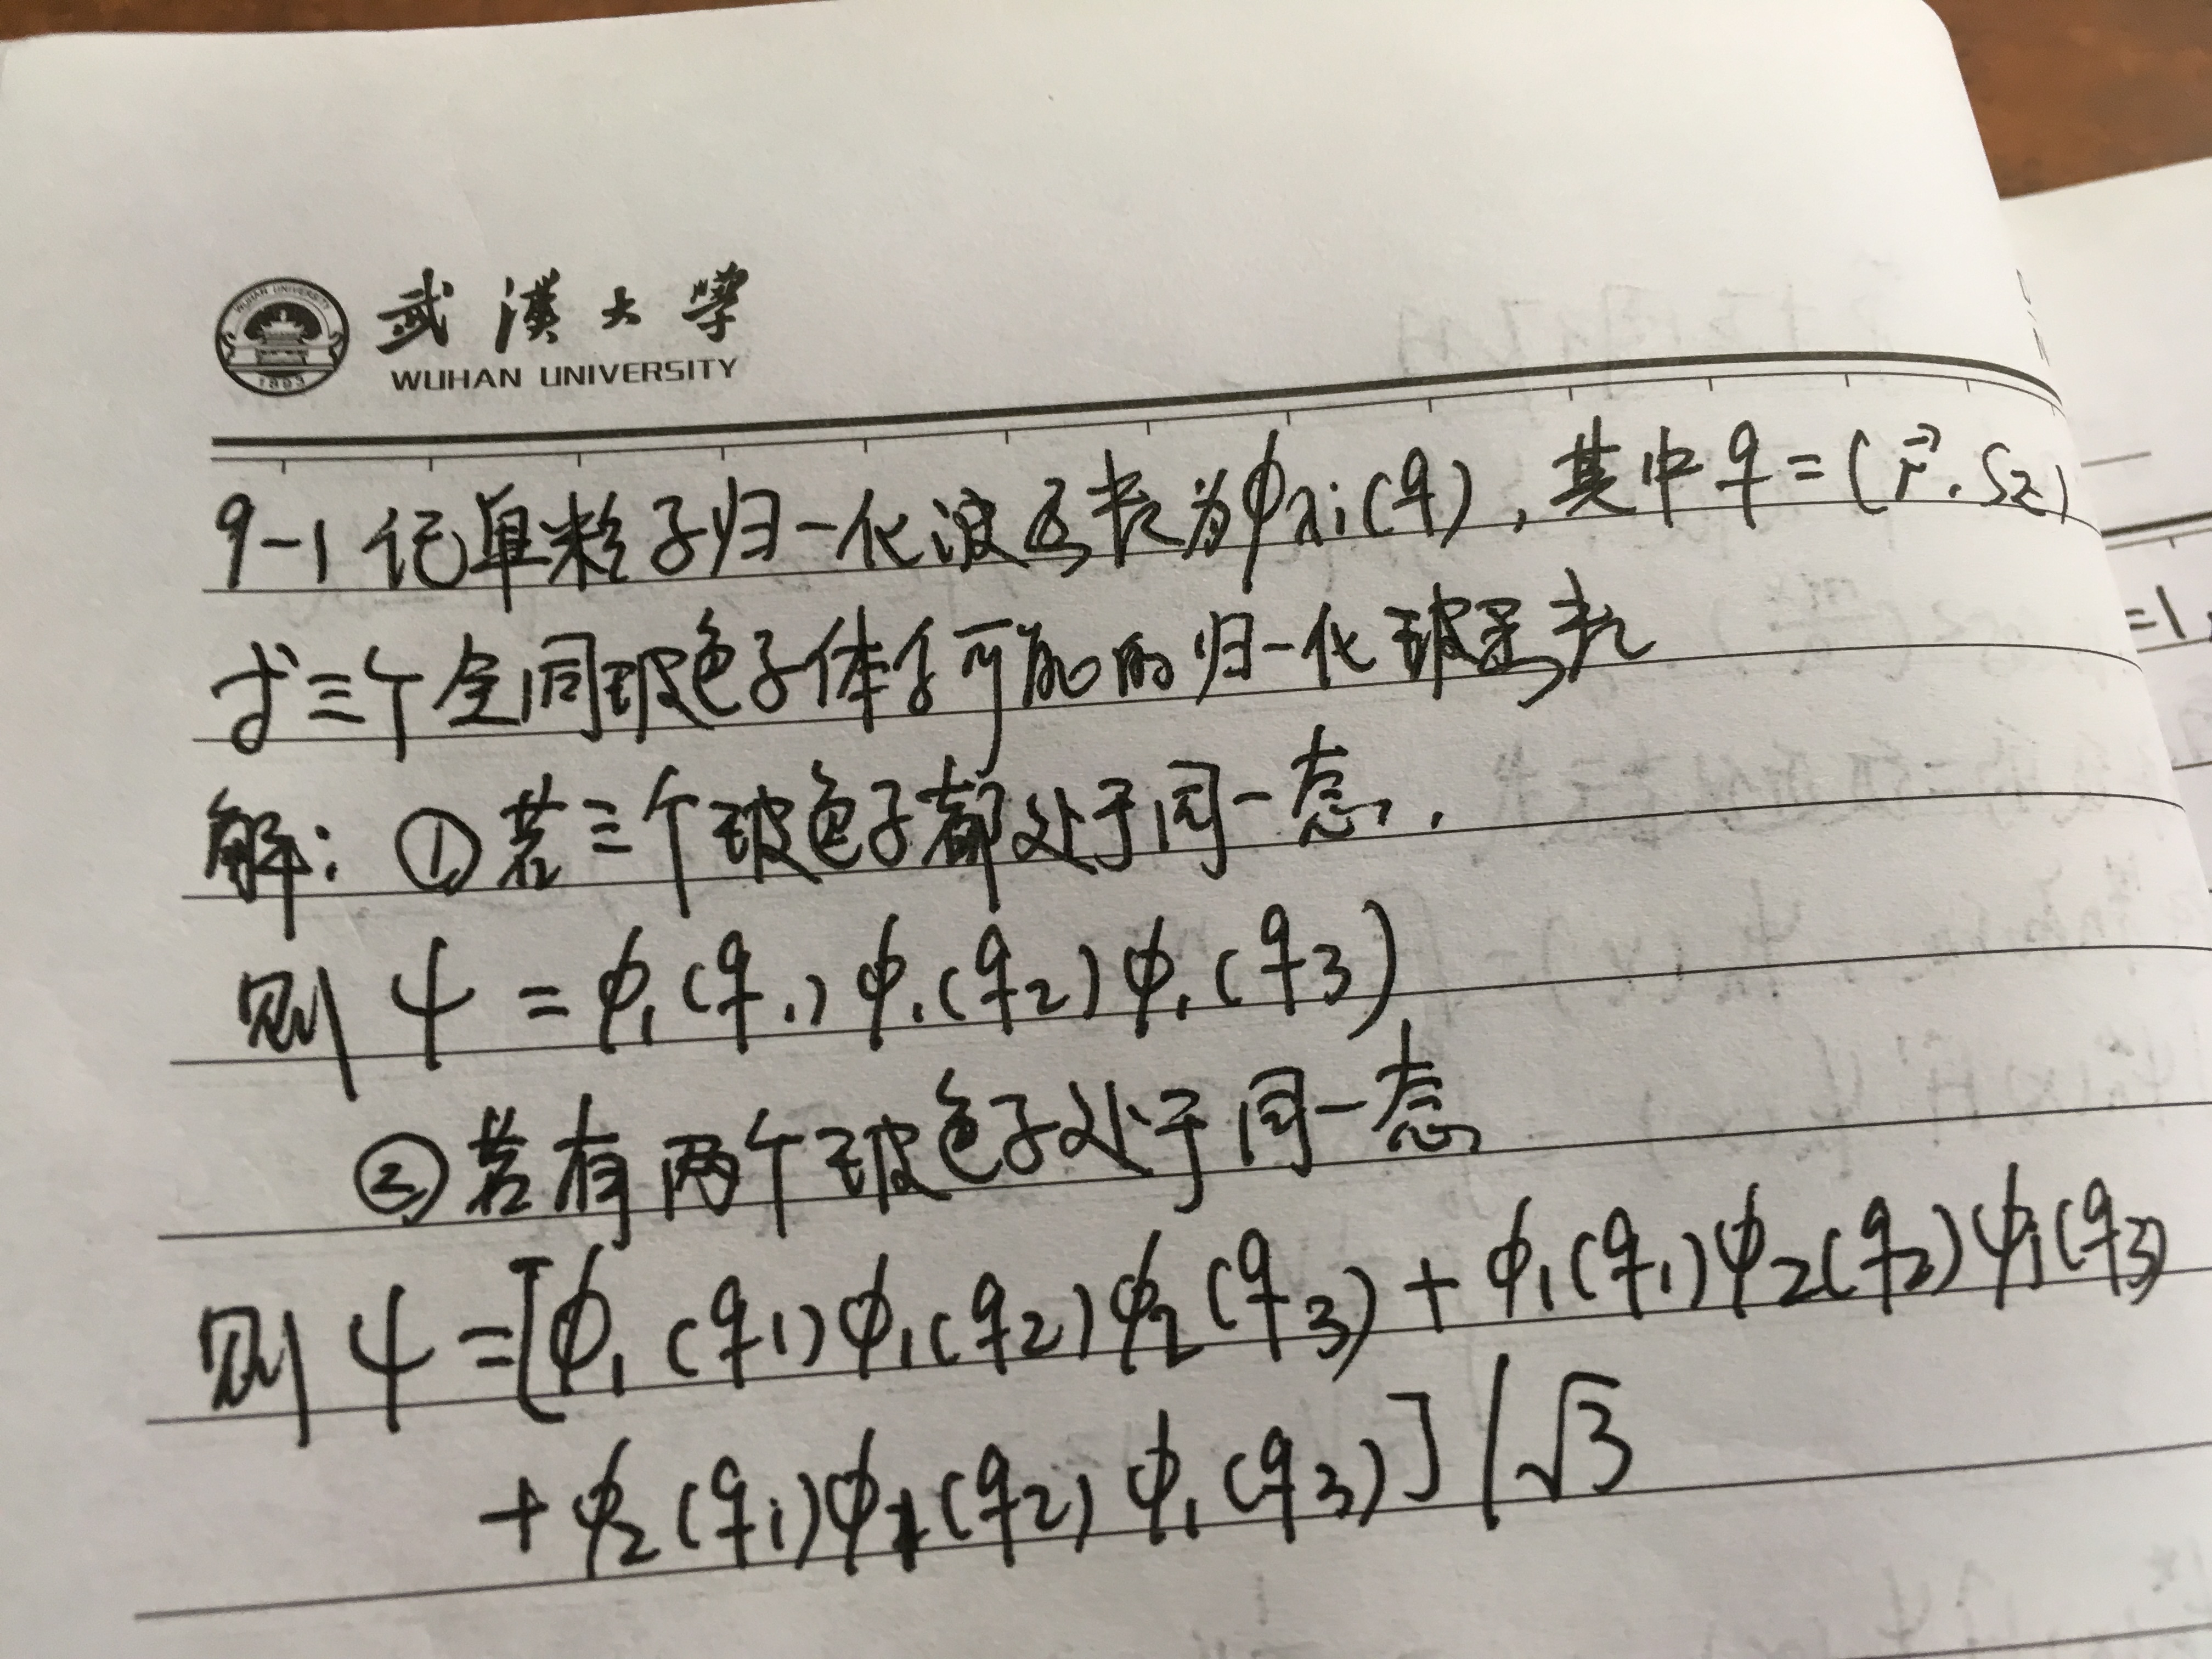 武汉大学
WUHAN UNIVERSITY
9-1 记单粒子归一化波函表为φλi(q),其中q=(r⃗.Sz)
求三个全同玻色子体系可能的归一化波函数
解:①若三个玻色子都处于同一态,
则 ψ=φ1(q1)φ1(q2)φ1(q3)
②若有两个玻色子处于同一态
则 ψ=[φ1(q1)φ1(q2)φ2(q3)+φ1(q1)φ2(q2)φ1(q3)
+φ2(q1)φ1(q2)φ1(q3)]/√3